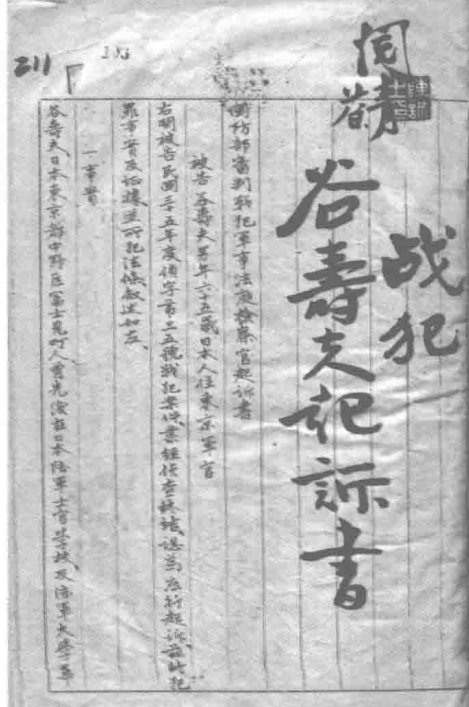 战犯
谷壽夫起訴書
國防部審判戰犯軍事法庭檢察官起訴書
被告 谷壽夫 男年六十五歲日本人住東京軍官
右開被告民國三十五年度偵字第二五號戰犯案件、業經偵查終結、認為應行起訴、茲將犯
罪事實及証據並所犯法條敘述如左、
一事實
谷壽夫日本東京都中野區富士見町人、曾先後在日本陸軍士官學校及陸軍大學畢
211